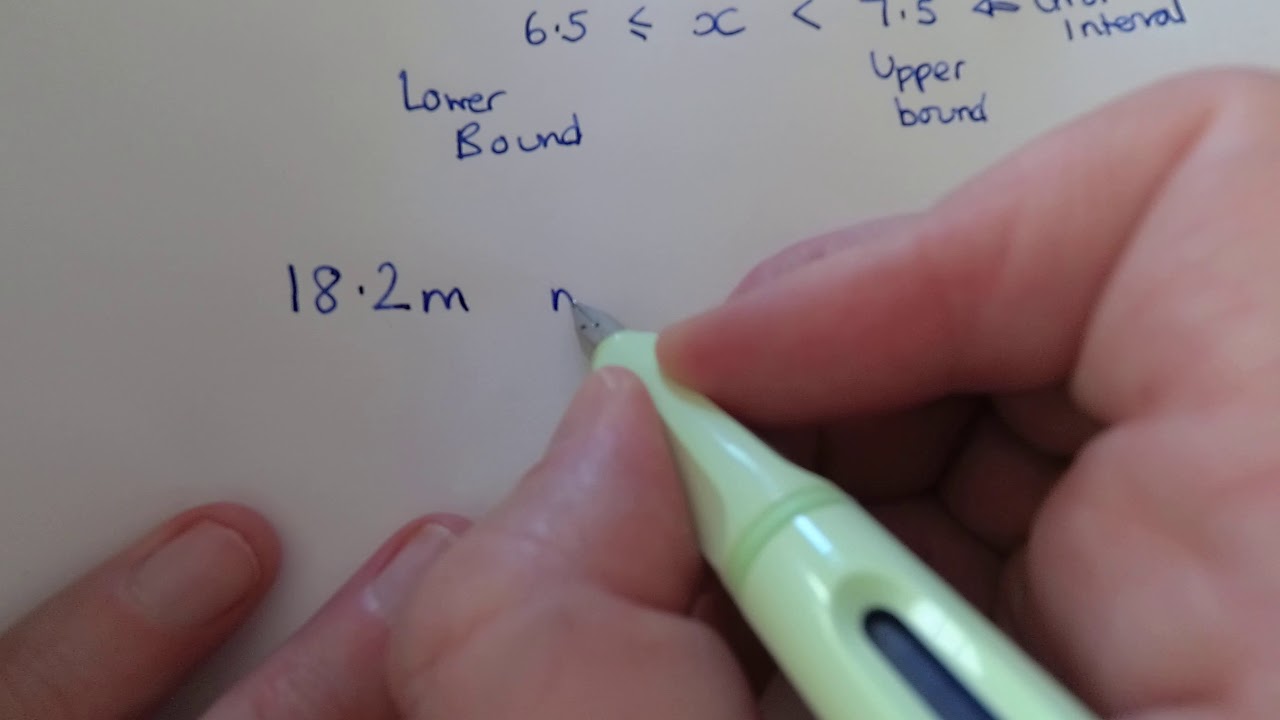 6.5 ≤ x < 7.5 ←
Interval
Lower
Bound
Upper
bound
18.2m n